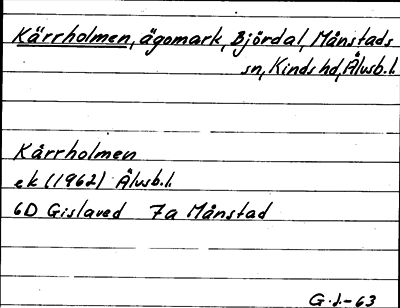 Kärrholmen, ägomark, Björdal, Månstads
sn, Kinds hd, Älvsb.l.
Kärrholmen
ek (1962) Älvsb.l.
6D Gislaved 7a Månstad
G.J.-63